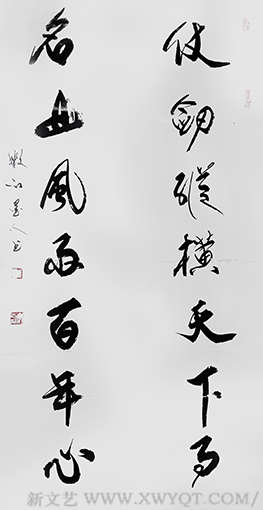 仗劍縱橫天下事
名山風雨百年心
新文艺 WWW.XWYQT.COM/